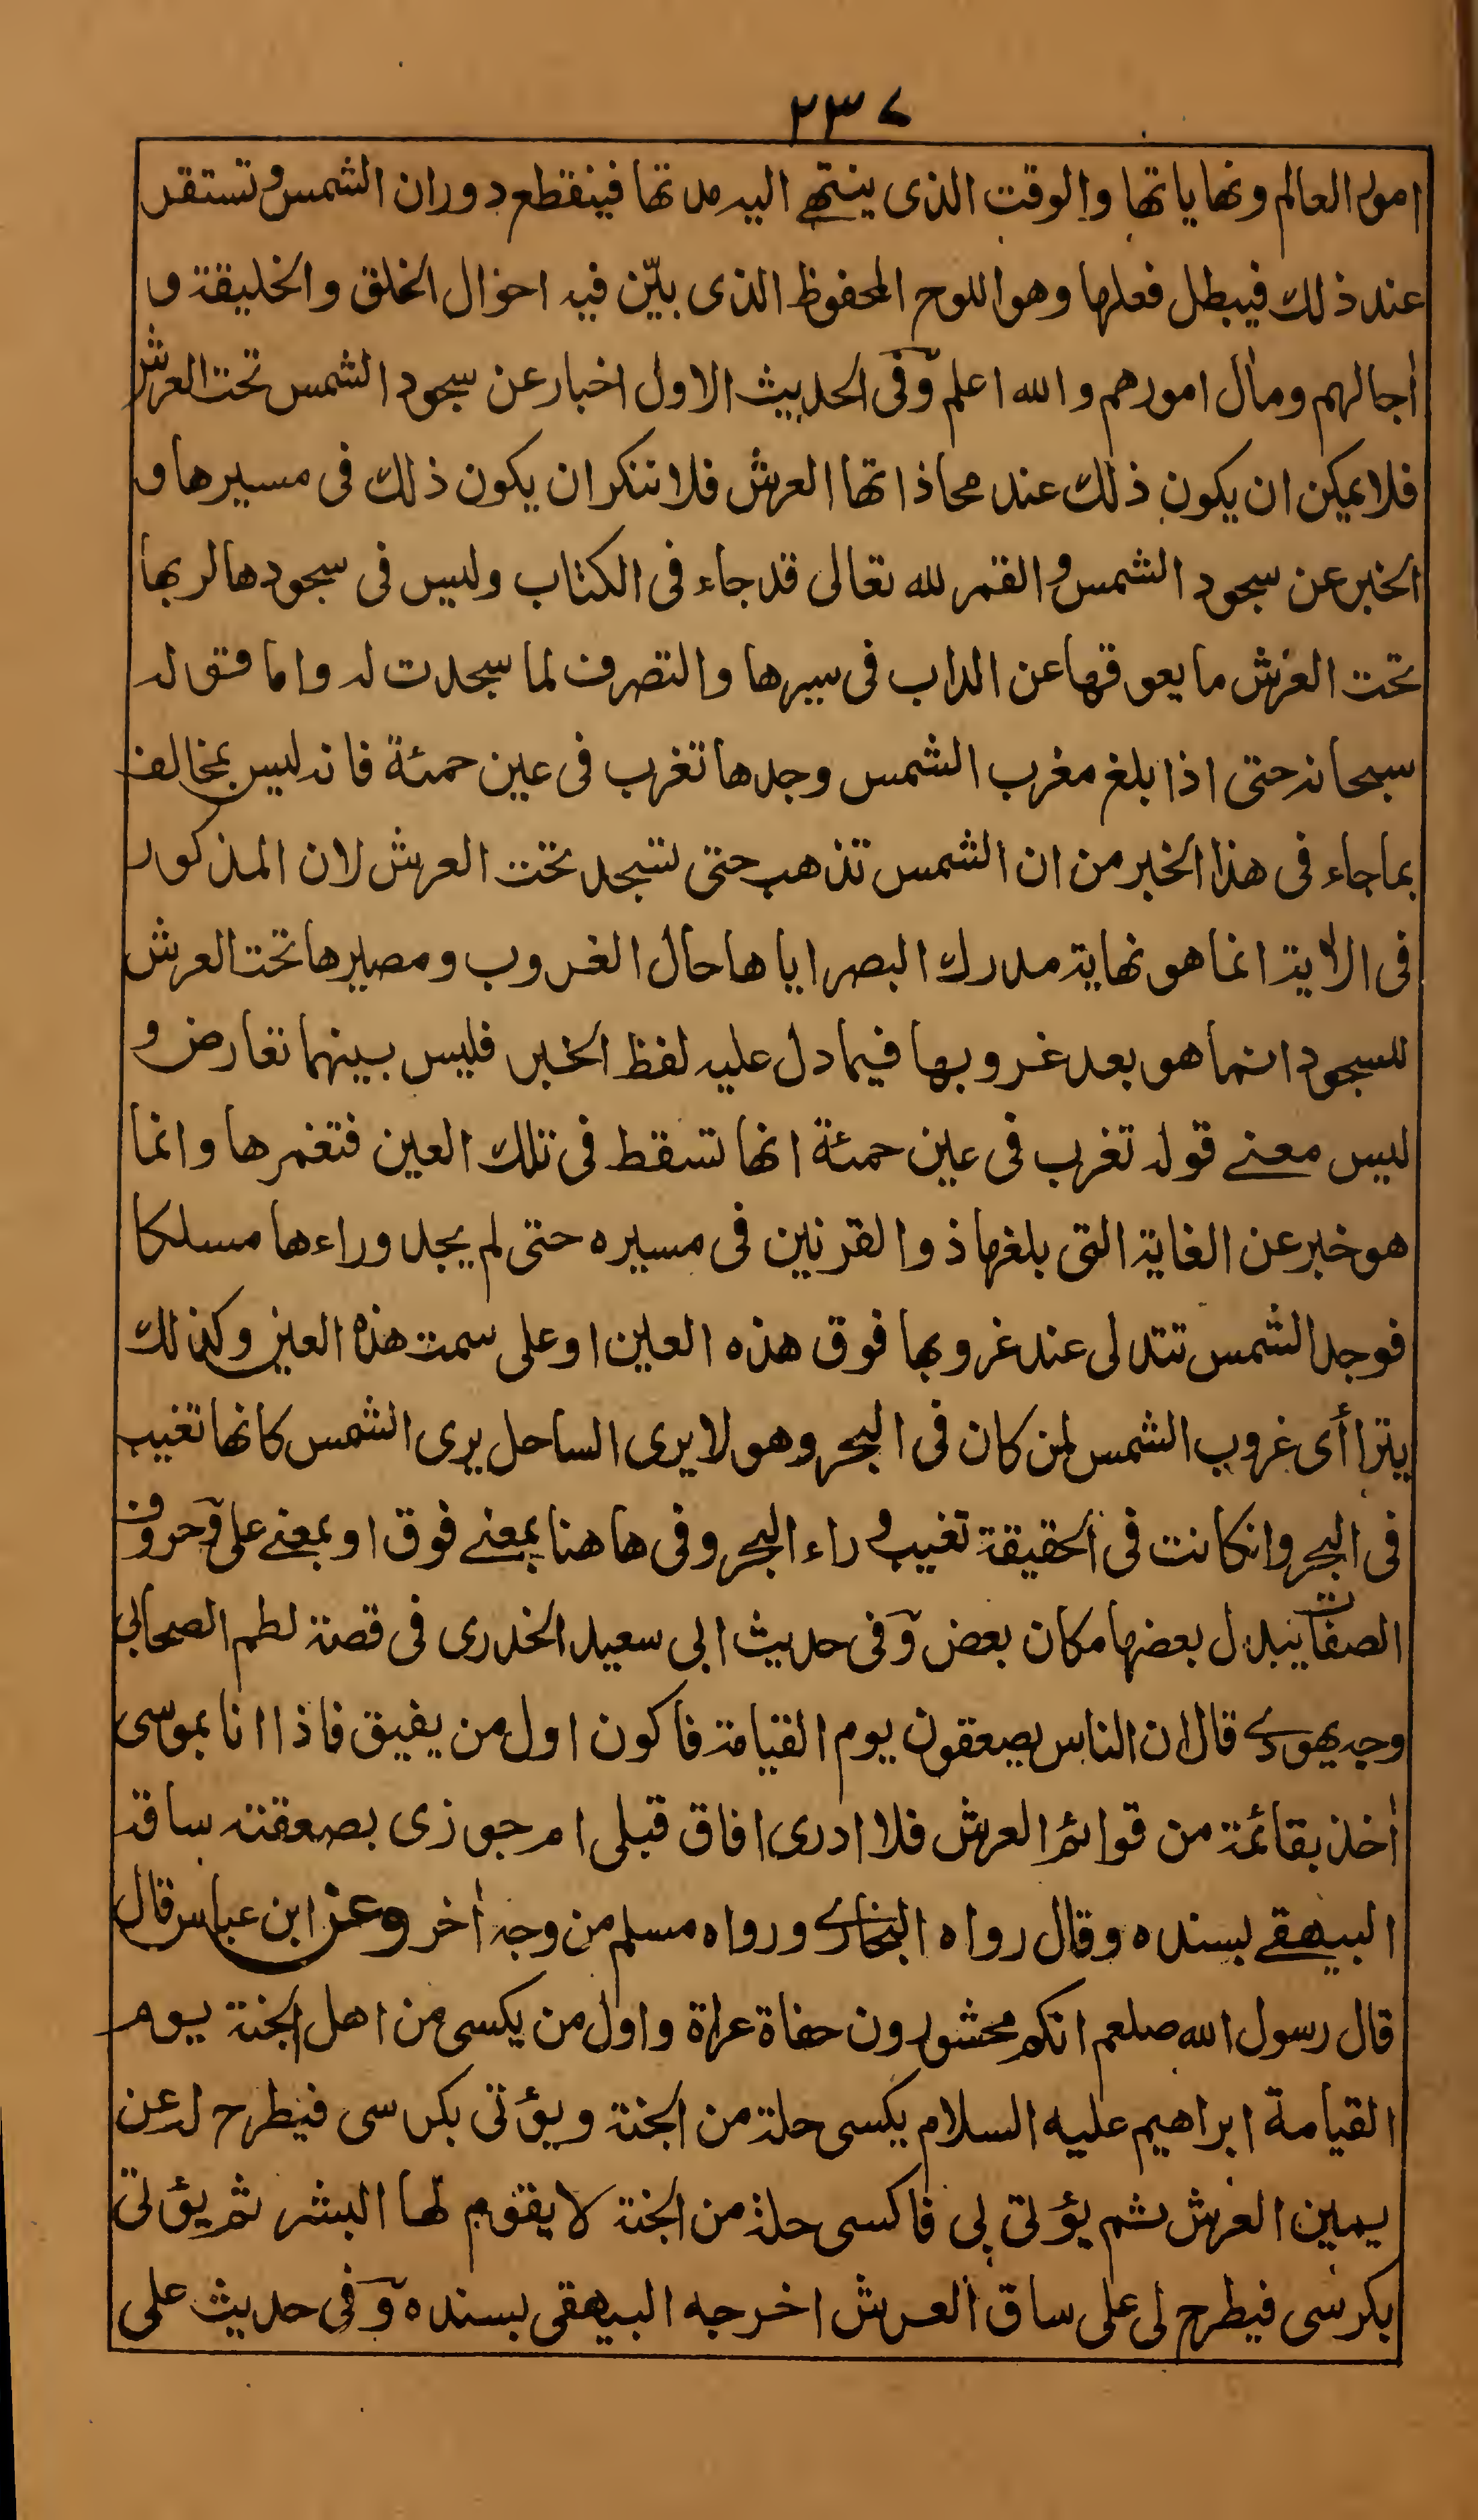 ٢٣٧
امور العالم ونهاياتها والوقت الذى ينتهے اليه مدتها فينقطع دوران الشمس وتستقر
عند ذلك فيبطل فعلها وهو اللوح المحفوظ الذى بيّن فيه احوال الخلق والخليقة و
اٰجالهم ومآل امورهم والله اعلم وفى الحديث الاول اخبار عن سجود الشمس تحت العرش
فلا يمكن ان يكون ذلك عند محاذاتها العرش فلا ننكر ان يكون ذلك فى مسيرها و
الخبر عن سجود الشمس والقمر لله تعالى قد جاء فى الكتاب وليس فى سجودها لربها
تحت العرش ما يعوقها عن الداب فى سيرها والتصرف لما سجدت له واما قوله
سبحانه حتى اذا بلغ مغرب الشمس وجدها تغرب فى عين حمئة فانه ليس بمخالف
بما جاء فى هذا الخبر من ان الشمس تذهب حتى تسجد تحت العرش لان المذكور
فى الاٰية انما هو نهاية مدرك البصر اياها حال الغروب ومصيرها تحت العرش
للسجود انما هو بعد غروبها فيما دل عليه لفظ الخبر فليس بينهما تعارض و
ليس معنے قوله تغرب فى عين حمئة انها تسقط فى تلك العين فتغمرها وانما
هو خبر عن الغاية التى بلغها ذو القرنين فى مسيره حتى لم يجد وراءها مسلكا
فوجد الشمس تتدلى عند غروبها فوق هذه العين او على سمت هذه العين وكذلك
يتراأى غروب الشمس لمن كان فى البحر وهو لا يرى الساحل يرى الشمس كانها تغيب
فى البحر وانكانت فى الحقيقة تغيب وراء البحر وفى هاهنا بمعنے فوق او بمعنے على وحروف
الصفات يبدل بعضها مكان بعض وفى حديث ابى سعيد الخدرى فى قصة لطم الصحابى
وجه يهودے قال ان الناس يصعقون يوم القيامة فاكون اول من يفيق فاذا انا بموسى
اٰخذ بقائمة من قوائم العرش فلا ادرى افاق قبلى ام جوزى بصعقته ساقه
البيهقے بسنده وقال رواه البخارے ورواه مسلم من وجه اٰخر وعن ابن عباس قال
قال رسول الله صلعم انكم محشورون حفاة عراة واول من يكسى من اهل الجنة يوم
القيامة ابراهيم عليه السلام يكسى حلة من الجنة ويؤتى بكرسى فيطرح له عن
يمين العرش ثم يؤتى بى فاكسى حلة من الجنة لا يقوم لها البشر ثم يؤتى
بكرسى فيطرح لى على ساق العرش اخرجه البيهقى بسنده وفى حديث على